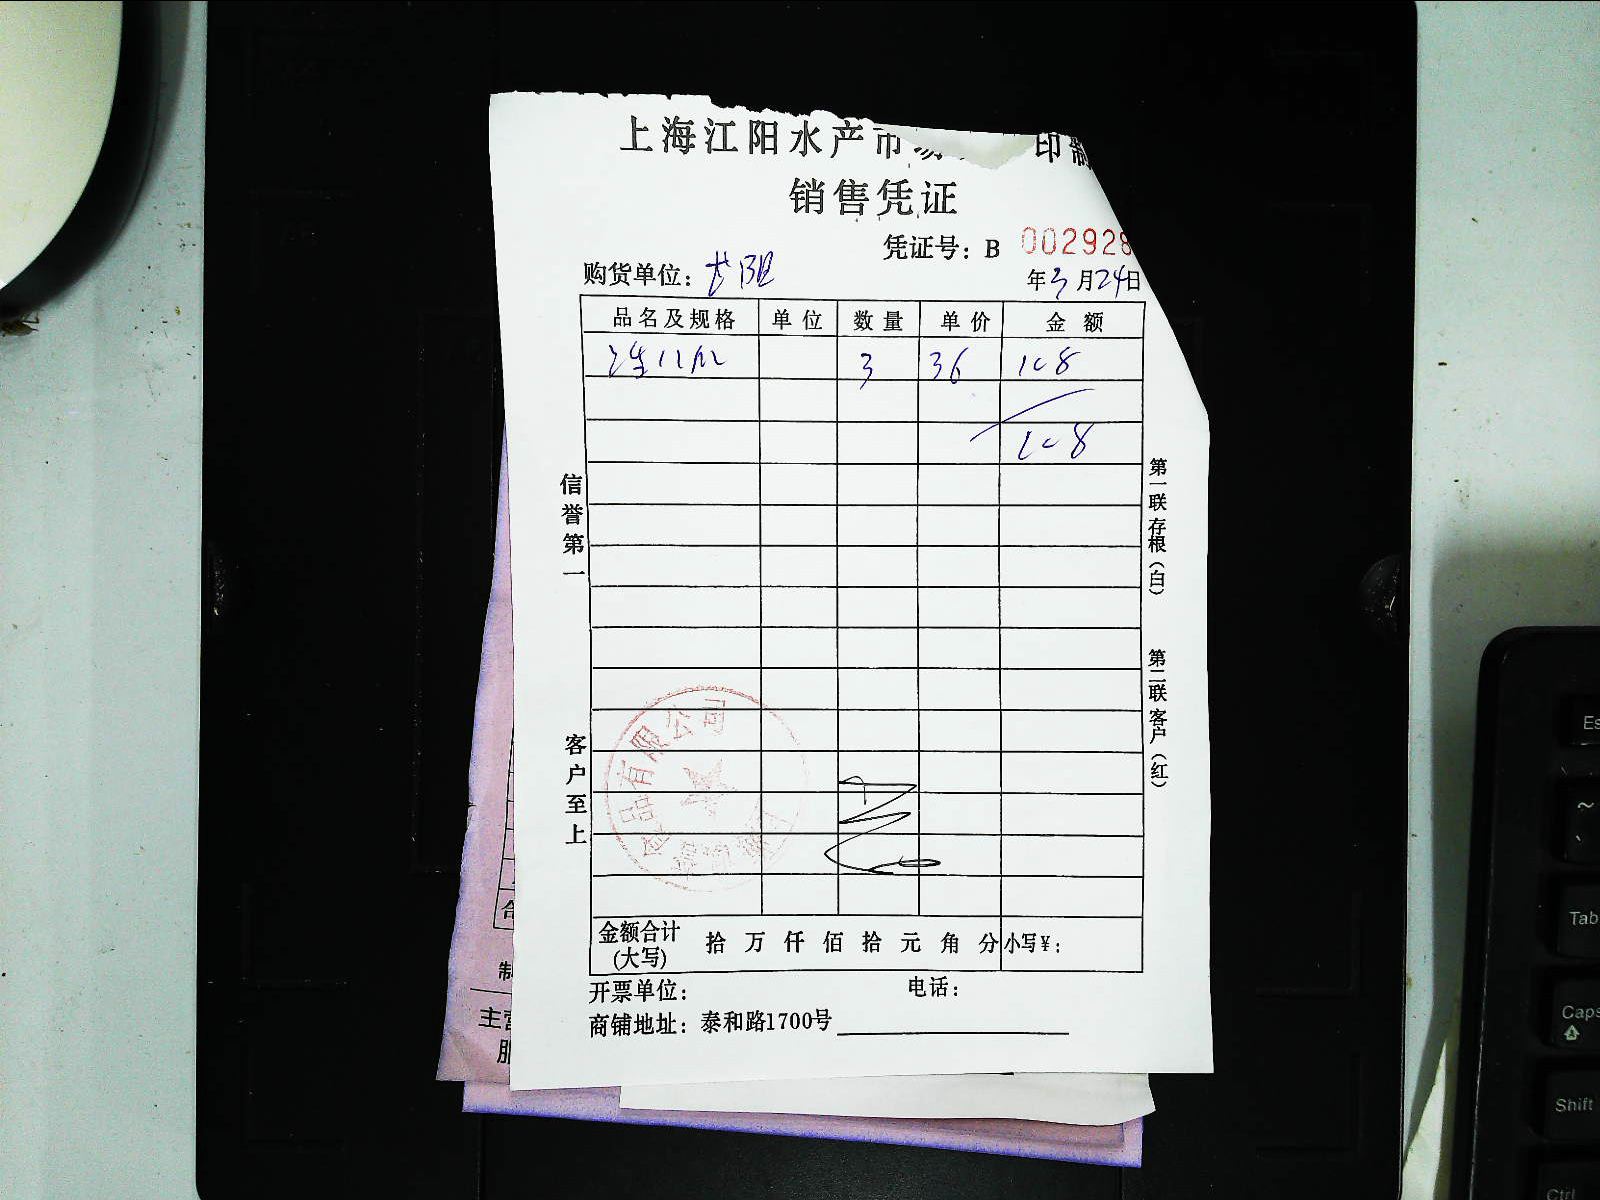 上海江阳水产市场 印制
销售凭证
凭证号：B 002928
购货单位：
年3月24日
品名及规格 单位 数量 单价 金额
3 36 108
108
信誉第一
客户至上
第一联存根（白）
第二联客户（红）
品有限公司
金额合计(大写) 拾 万 仟 佰 拾 元 角 分 小写¥：
开票单位： 电话：
商铺地址：泰和路1700号
合
制
主营
服
Es
~
Tab
Caps
Shift
Ctrl